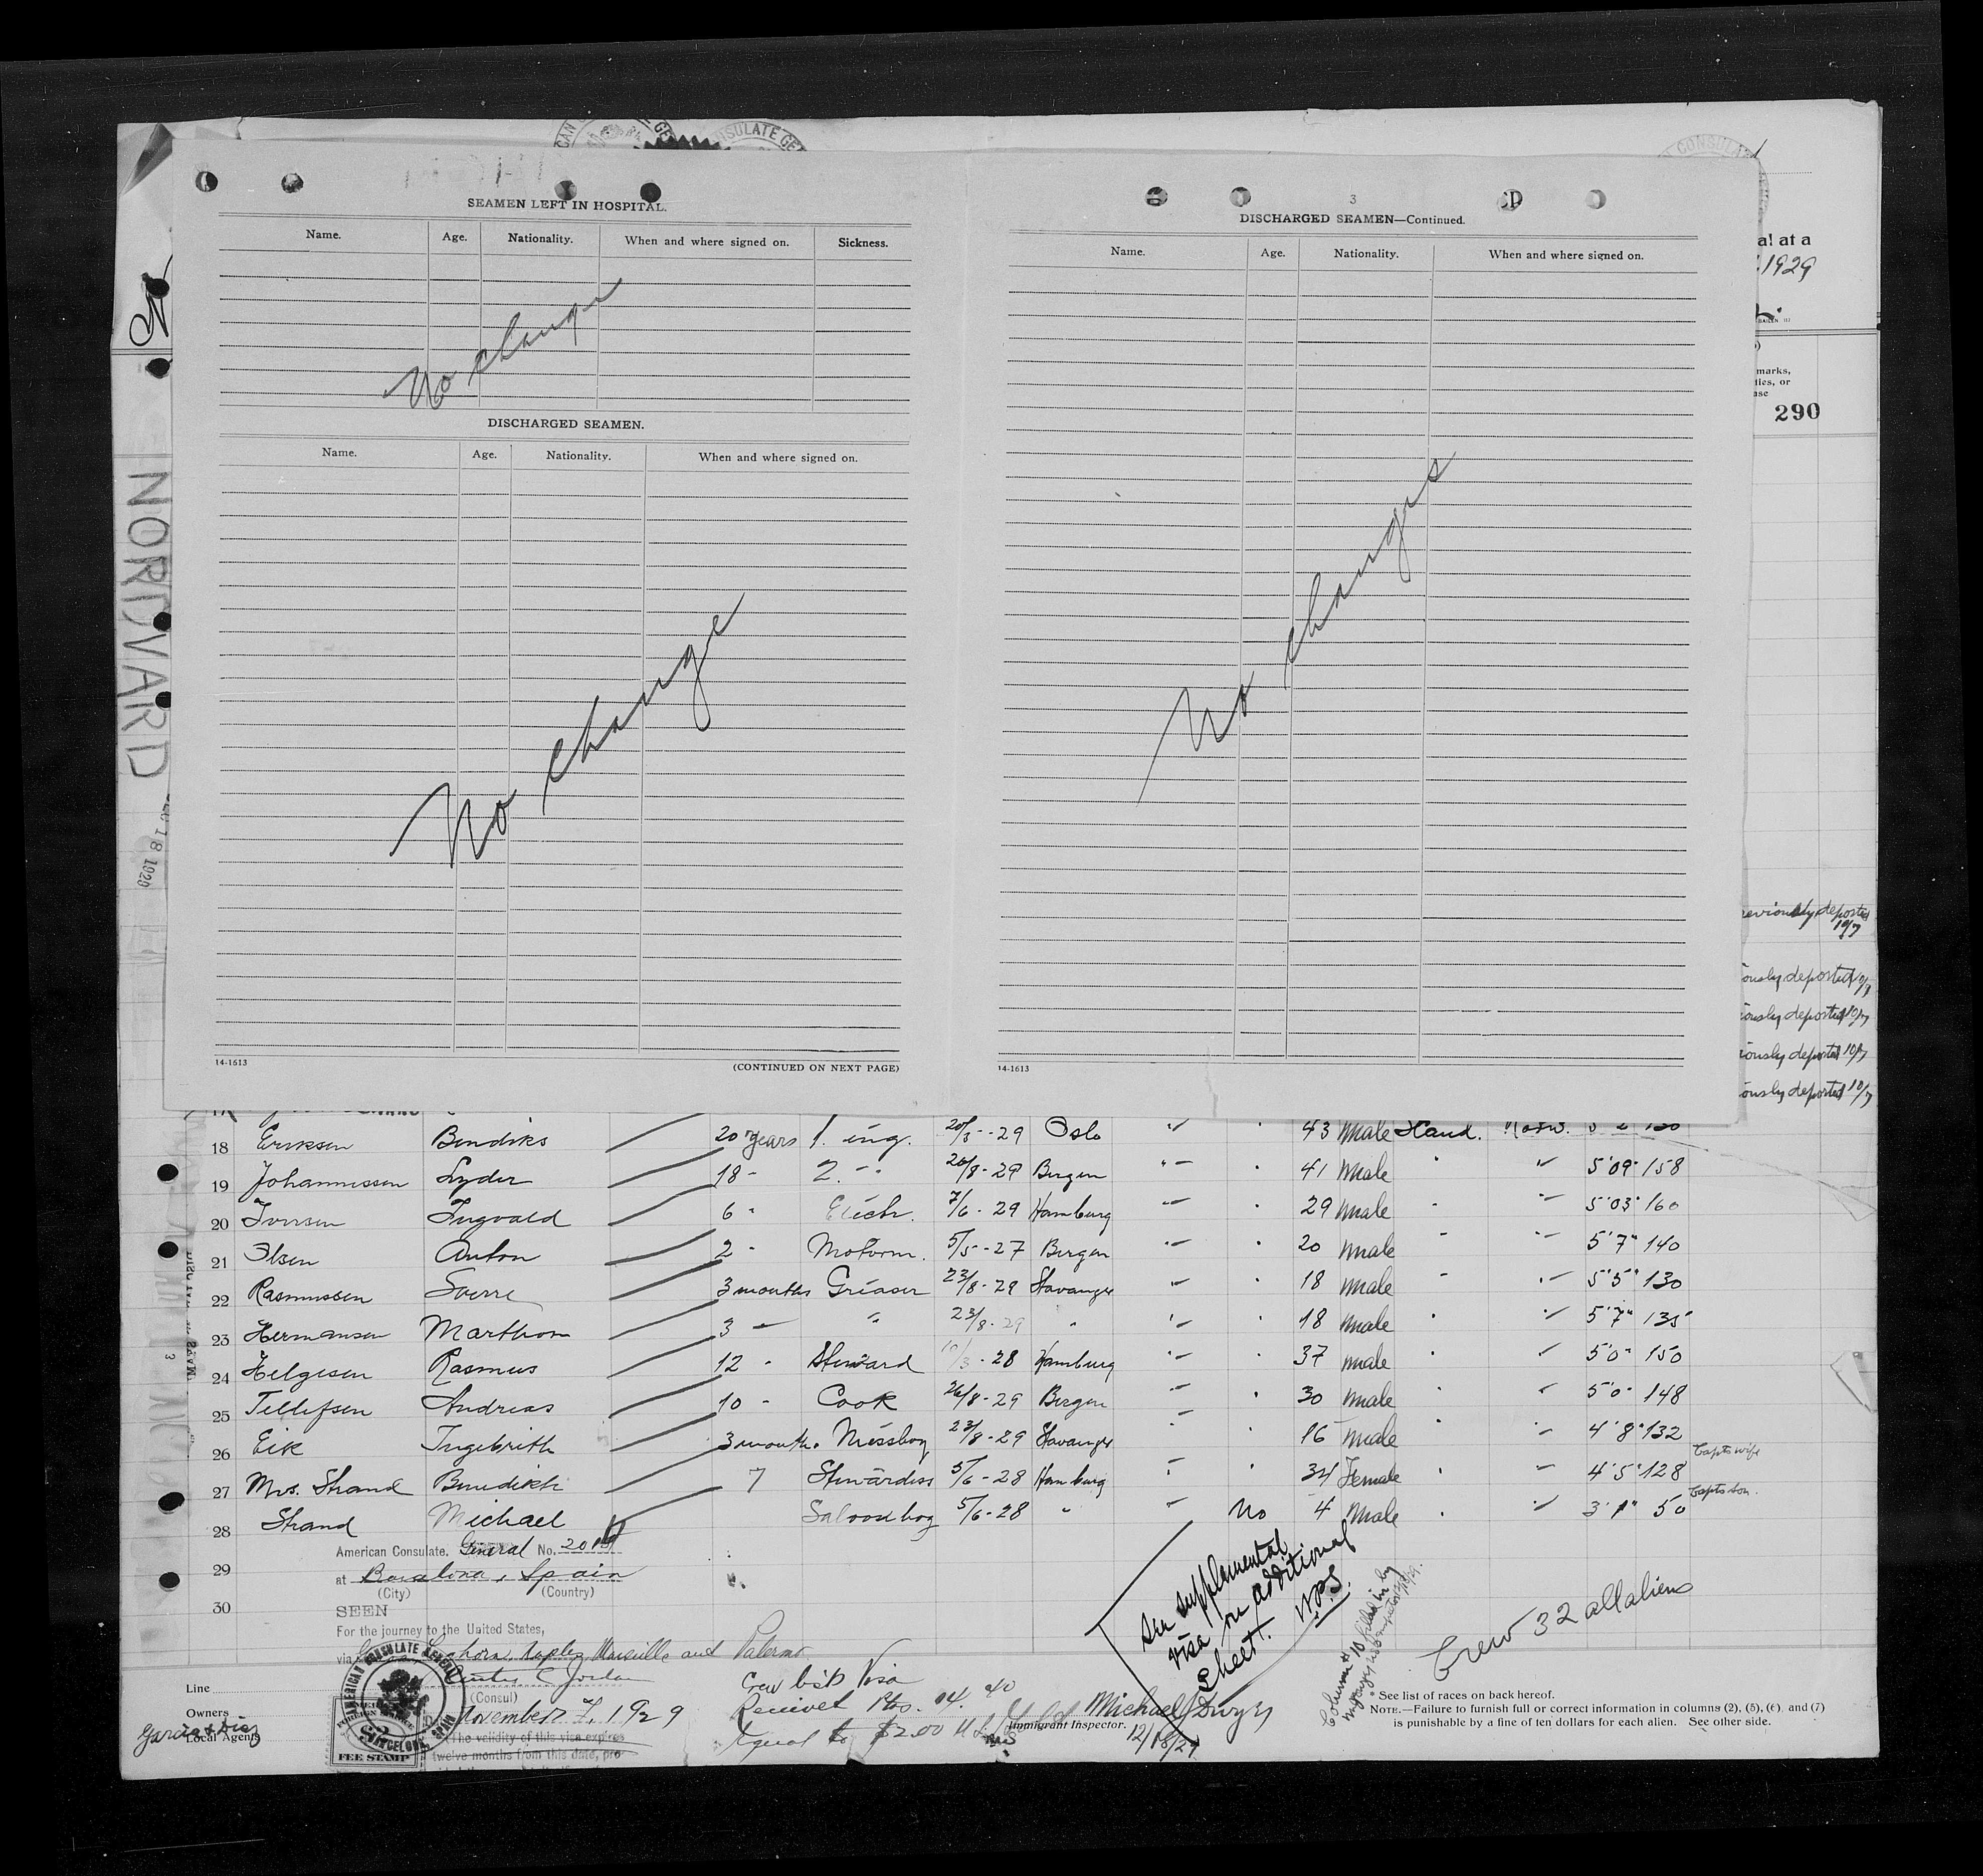 SEAMEN LEFT IN HOSPITAL.
Name. Age. Nationality. When and where signed on. Sickness.
No change
DISCHARGED SEAMEN.
Name. Age. Nationality. When and where signed on.
No change
14-1613 (CONTINUED ON NEXT PAGE)
3
DISCHARGED SEAMEN—Continued.
Name. Age. Nationality. When and where signed on.
No changes
14-1613
al at a
1929
marks,
ties, or
ase
290
NORDVARD
18 1929
eviously deported 10/7
ously deported 10/7
ously deported 10/7
iously deported 10/7
ously deported 10/7
18 Eriksen Bendiks 20 years 1. eng. 20/3 - 29 Oslo 43 Male Scand.
19 Johannessen Lyder 18 - 2. - 20/8 - 29 Bergen 41 Male 5'09" 158
20 Iversen Ingvald 6 " 7/6 - 29 Hamburg 29 Male 5'03" 160
21 Olsen Anton 2 - Motorm. 5/5 - 27 Bergen 20 Male 5'7" 140
22 Rasmussen Sverre 3 months Greaser 23/8 - 29 Stavanger 18 Male 5'5" 130
23 Hermansen Marthon 3 - " 23/8 - 29 " 18 Male 5'7" 135
24 Helgesen Rasmus 12 - Steward 28 Hamburg 37 Male 5'0" 150
25 Tellefsen Andreas 10 - Cook 26/8 - 29 Bergen 30 Male 5'0" 148
26 Eik Ingebrith 3 month. Messboy 23/8 - 29 Stavanger 16 Male 4'8" 132
27 Mrs. Strand Benedikte 7 Stewardess 5/6 - 28 Hamburg 34 Female 4'5" 128 Capts wife
28 Strand Michael Saloonboy 5/6 - 28 " No 4 Male 3'1" 50 Capts son.
29
30
American Consulate. General No.
at Barcelona, Spain
(City) (Country)
SEEN
For the journey to the United States,
via Leghorn, Naples, Marseille and Palermo
(Consul)
November 7, 1929
The validity of this visa expires
twelve months from this date, pro-
AMERICAN CONSULATE GENERAL
BARCELONA, SPAIN
FEE STAMP
Crew list Visa
Equal to $2.00
See supplemental
visa on additional
sheet. W.P.S.
Crew 32 all aliens
Line
Owners
Garcia & Diaz
Local Agents
Michael Dwyer
Immigrant Inspector.
12/18/29
* See list of races on back hereof.
NOTE.—Failure to furnish full or correct information in columns (2), (5), (6) and (7)
is punishable by a fine of ten dollars for each alien. See other side.